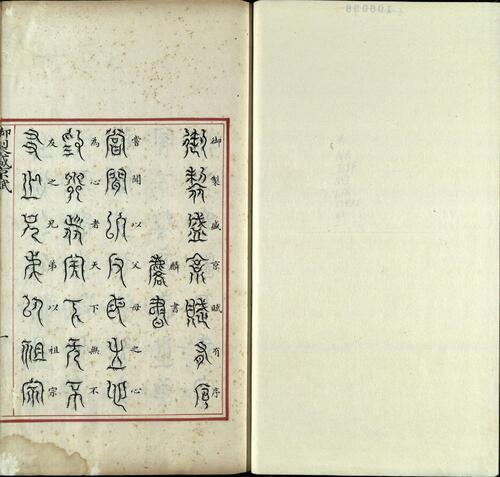 御製盛京賦有序
御製盛京賦有序
麟書
麟書
嘗聞以父母之心
嘗聞以父母之心
為心者天下無不
為心者天下無不
友之兄弟以祖宗
友之兄弟以祖宗
御製盛京賦
一